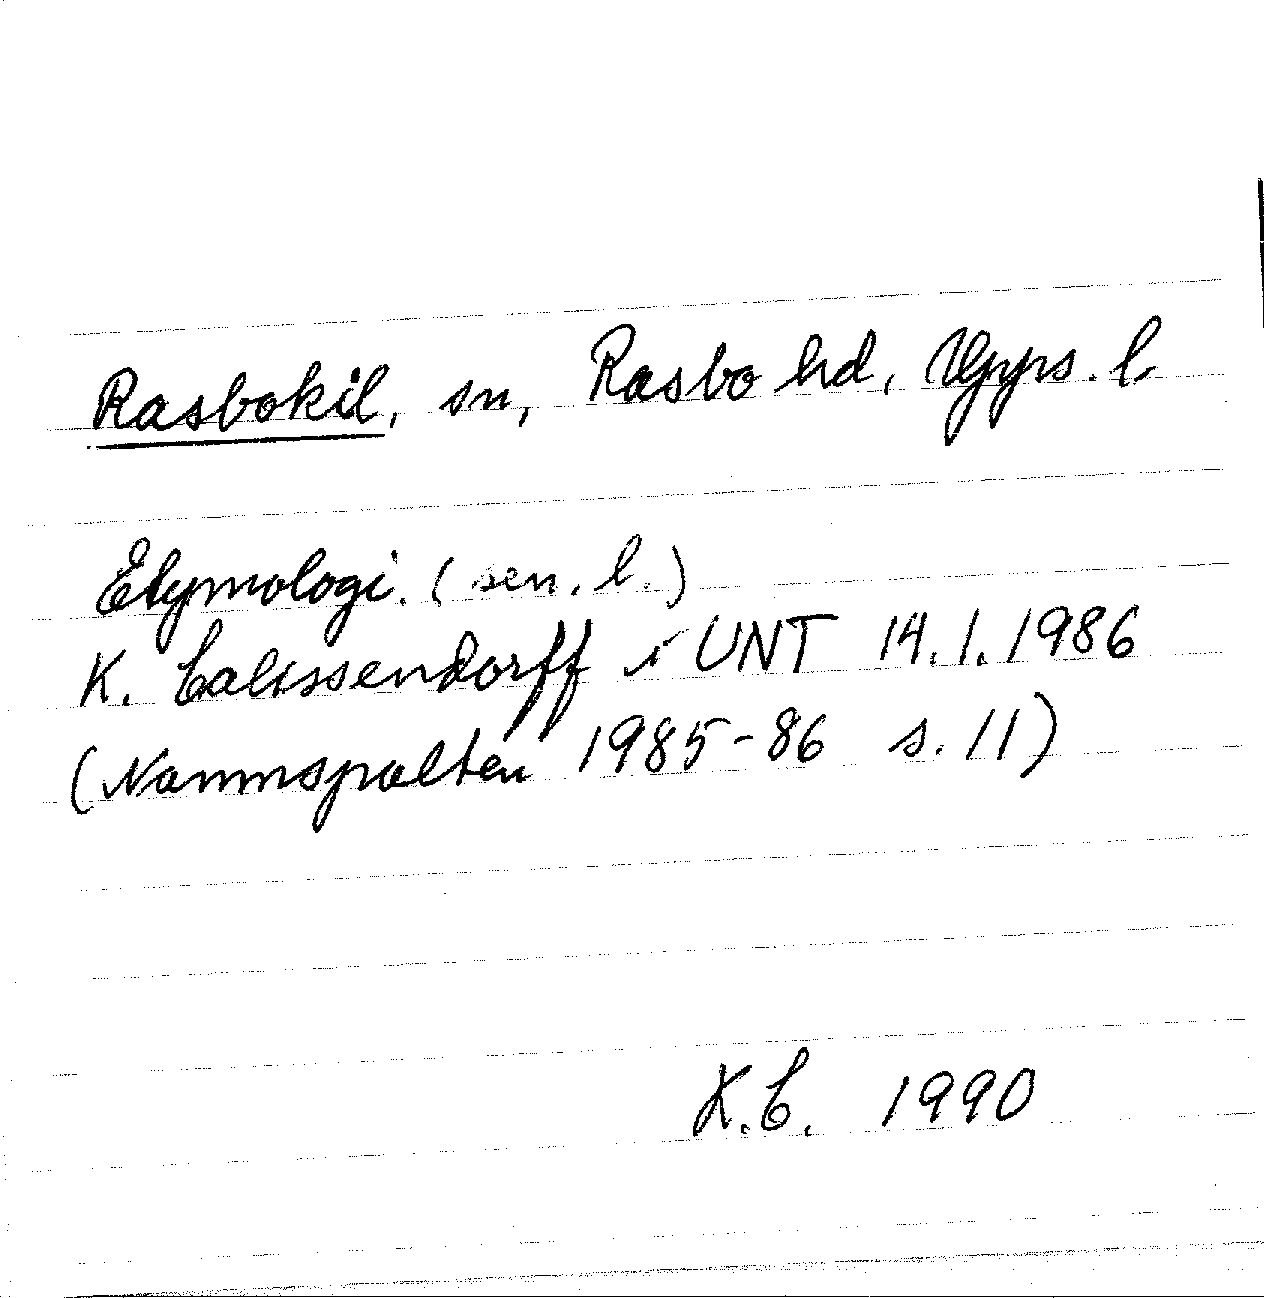 Rasbokil, sn, Rasbo hd, Upps. l
Etymologi. (sen. l.)
K. Calissendorff i UNT 14.1.1986
(Namnspalten 1985-86 s. 11)
K.C. 1990